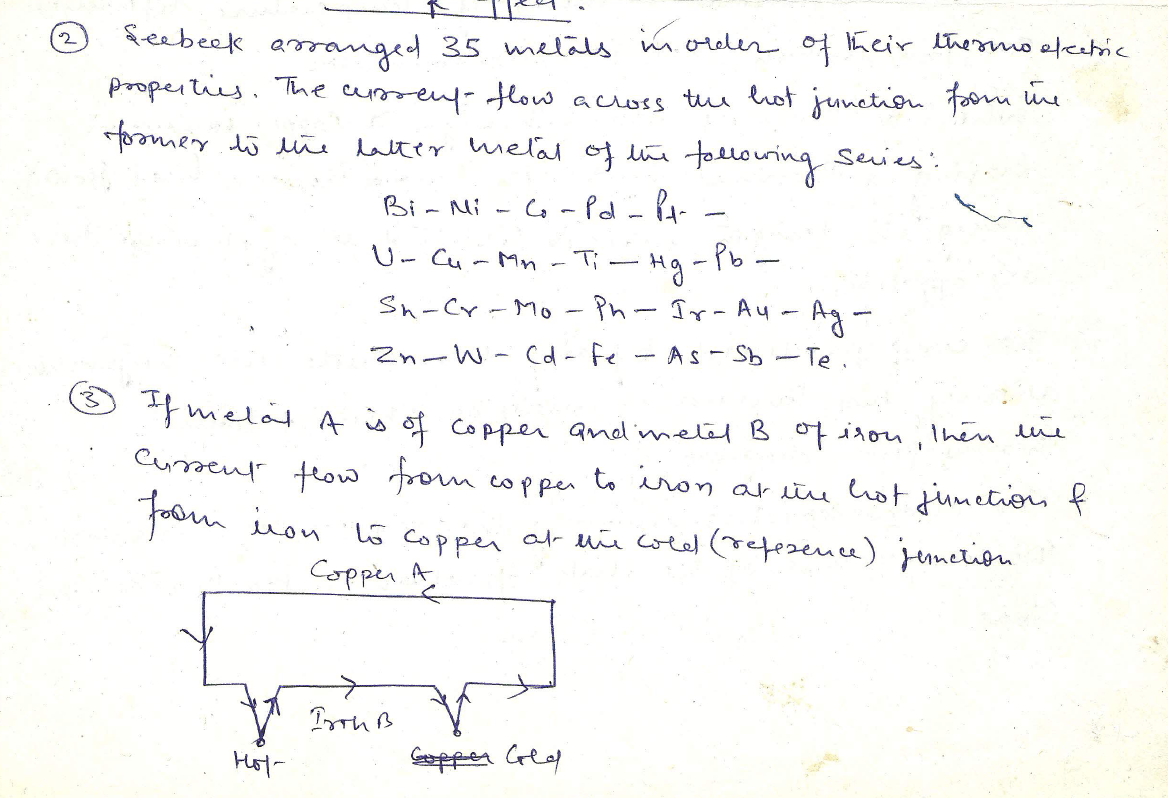 ② Seebeek arranged 35 metals in order of their thermo electric
properties. The current flow across the hot junction from the
former to the latter metal of the following series:
Bi - Ni - Co - Pd - Pt -
U - Cu - Mn - Ti - Hg - Pb -
Sn - Cr - Mo - Ph - Ir - Au - Ag -
Zn - W - Cd - Fe - As - Sb - Te.
③ If metal A is of copper and metal B of iron, then the
current flow from copper to iron at the hot junction &
from iron to copper at the cold (reference) junction
Copper A
Iron B
Hot Cold